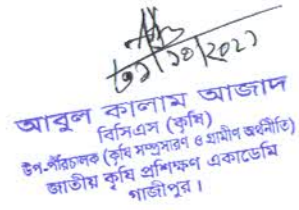 ৩১/১০/২০২১
আবুল কালাম আজাদ
বিসিএস (কৃষি)
উপ-পরিচালক (কৃষি সম্প্রসারণ ও গ্রামীণ অর্থনীতি)
জাতীয় কৃষি প্রশিক্ষণ একাডেমি
গাজীপুর।